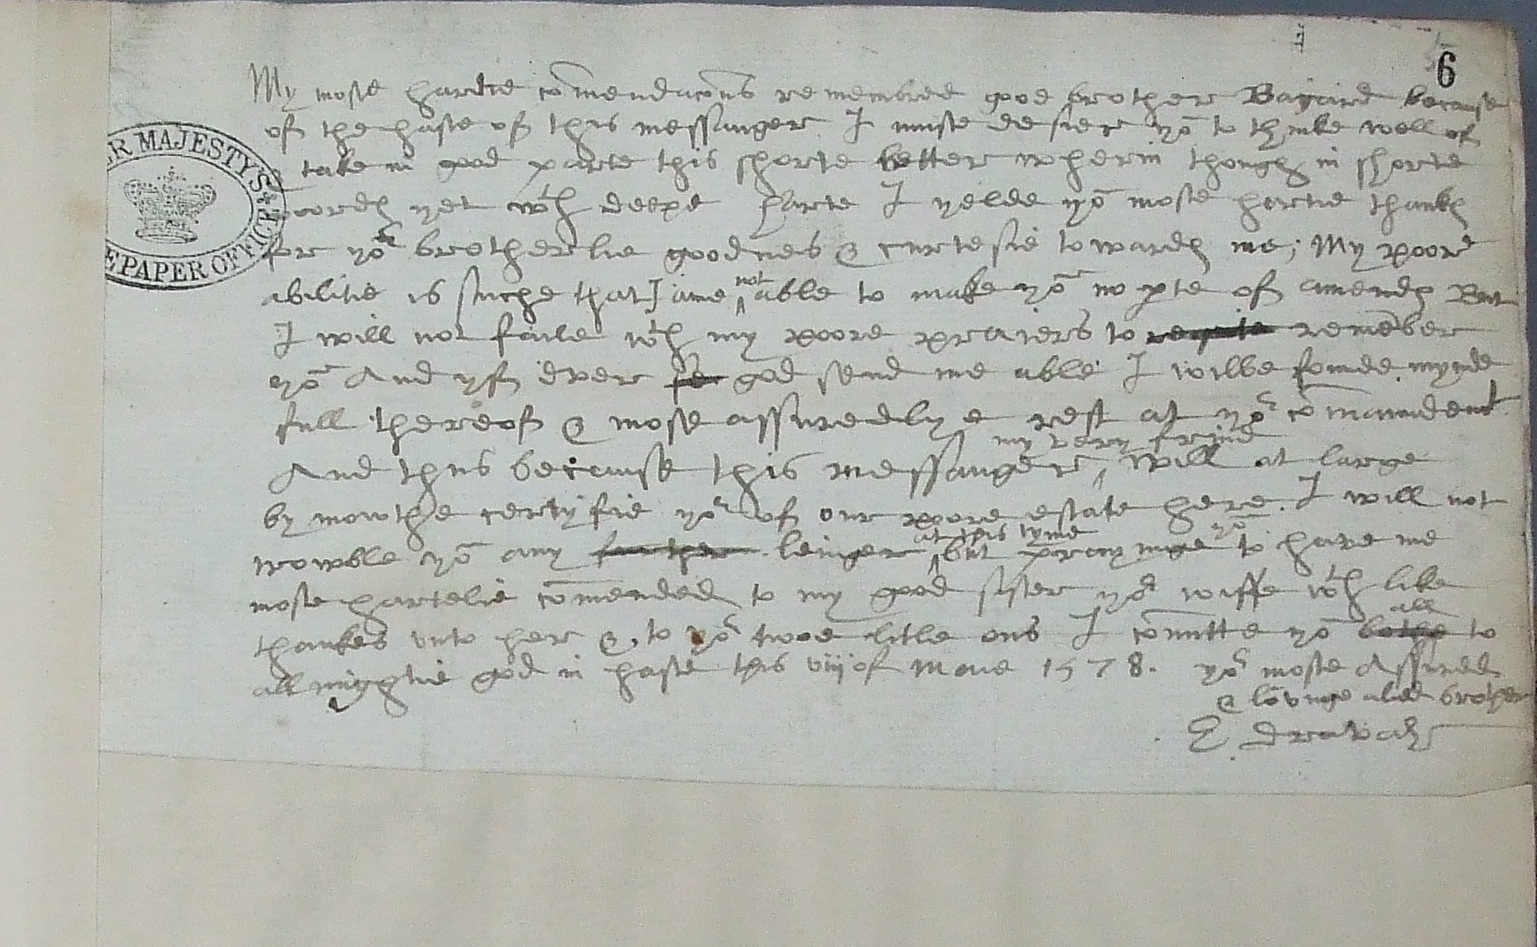 6
My moste hartie comendacons remembred good brother Bayard because
of the haste of this messanger I muste desier yor to thinke well of
& take in good parte this shorte letter wherin though in shorte
woordes yet wth deepe harte I yelde yor moste hartie thankes
for yor brotherlie goodnes & curtesie towardes me; My poore
abilitie is suche that I ame not able to make yor no pte of amendes But
I will not faile wth my poore praiers to requite remember
yor And yf ever god send me able I wilbe founde mynde
full thereof & moste assuredlye rest at yor comaundent
my very frinde
And thus because this messanger, will at large
by mowthe certyfie yor of our poore estate here. I will not
at this tyme yor
trowble yor any further lenger but prayinge to have me
moste hartelie comended to my good sister yor wiffe wth like
all
thankes unto her &, to yor twoe litle ons I comitte yor bothe to
allmightie god in haste this viij of Maie 1578. yor moste Assured
& lovinge alied brother
HER MAJESTY'S
PAPER OFFICE